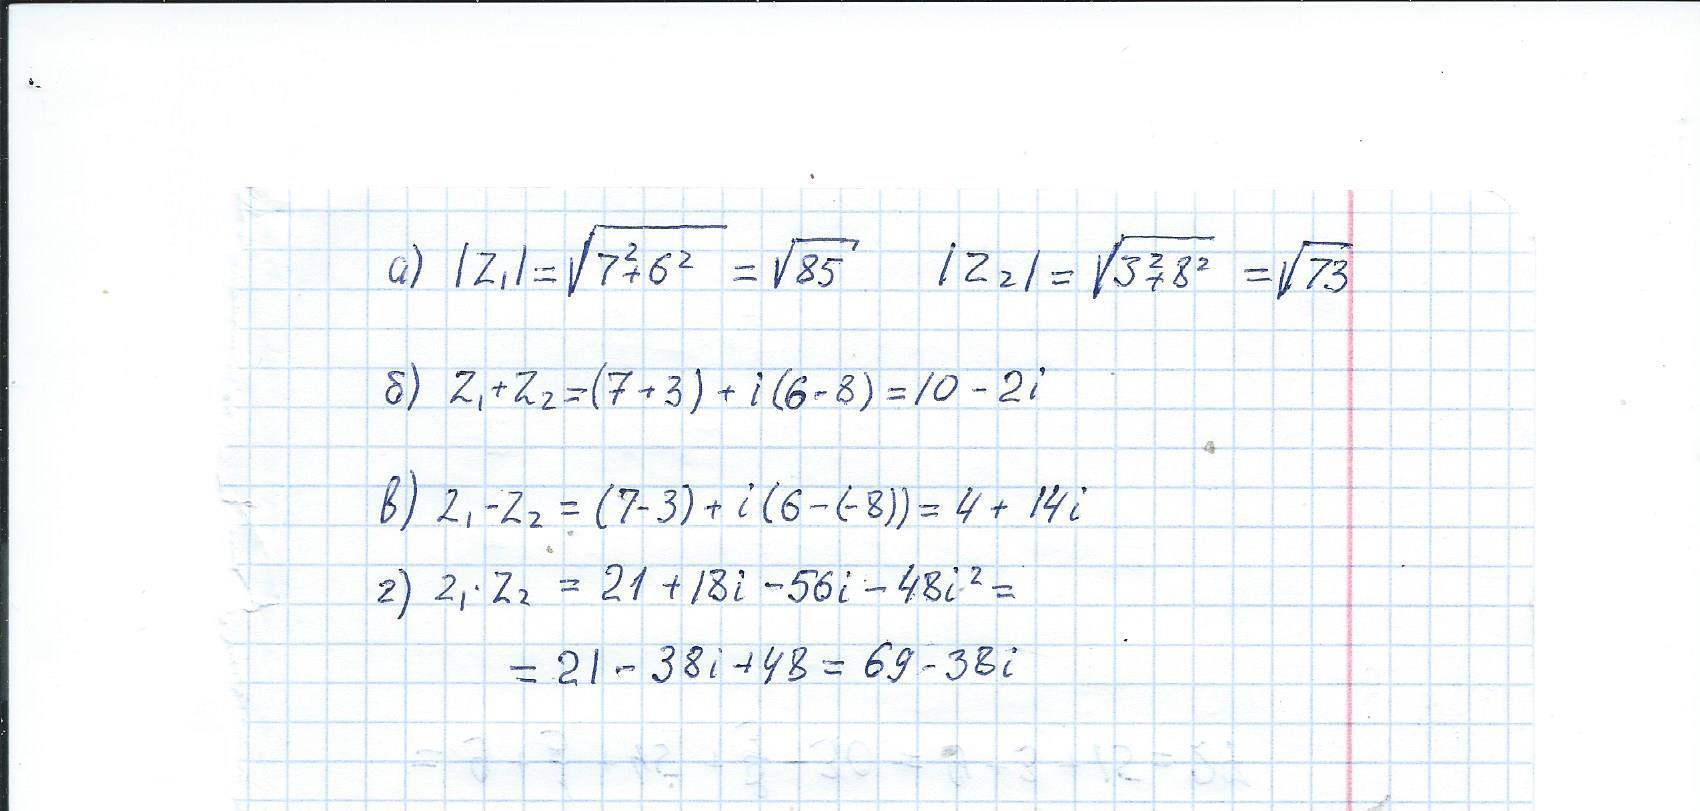 а) |Z₁| = √(7²+6²) = √85 |Z₂| = √(3²+8²) = √73
б) Z₁+Z₂ = (7+3) + i(6-8) = 10 - 2i
в) Z₁-Z₂ = (7-3) + i(6-(-8)) = 4 + 14i
г) Z₁·Z₂ = 21 + 18i - 56i - 48i² =
= 21 - 38i + 48 = 69 - 38i